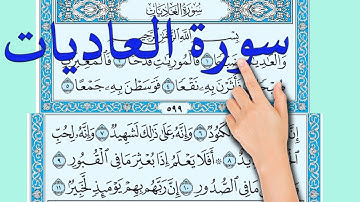 سُورَةُ العَادِيَاتِ
سورة العاديات
بِسْمِ اللَّهِ الرَّحْمَٰنِ الرَّحِيمِ
وَالْعَٰدِيَٰتِ ضَبْحًا ١ فَالْمُورِيَٰتِ قَدْحًا ٢ فَالْمُغِيرَٰتِ
صُبْحًا ٣ فَأَثَرْنَ بِهِۦ نَقْعًا ٤ فَوَسَطْنَ بِهِۦ جَمْعًا ٥
٥٩٩
لَكَنُودٌ ٦ وَإِنَّهُۥ عَلَىٰ ذَٰلِكَ لَشَهِيدٌ ٧ وَإِنَّهُۥ لِحُبِّ
لَشَدِيدٌ ٨ أَفَلَا يَعْلَمُ إِذَا بُعْثِرَ مَا فِي الْقُبُورِ ٩
مَا فِي الصُّدُورِ ١٠ إِنَّ رَبَّهُم بِهِمْ يَوْمَئِذٍ لَّخَبِيرٌ ١١